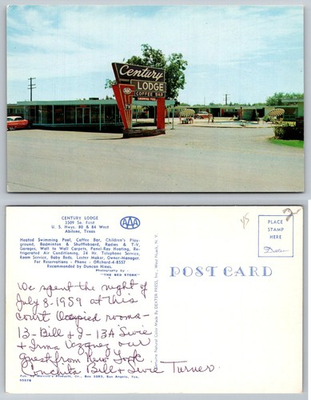 Century
LODGE
COFFEE BAR
CENTURY LODGE
U. S. Hwys. 80 & 84 West
Abilene, Texas
AAA
Heated Swimming Pool, Coffee Bar, Children's Play-
ground, Badminton & Shuffleboard, Radios & T.V.
Garages, Wall to Wall Carpets, Panel-Ray Heating, Re-
frigerated Air Conditioning, 24 Hr. Telephone, Room
Service, Baby Beds,
For Reservations - Phone - ORchard 4-8557
Recommended by Duncan Hines.
PLACE
STAMP
HERE
POST CARD
We spent the night of
July 8-1959 at this
Court Occupied rooms-
12-Bill & I-13A Sivie
& Irma Vazquez our
guest from New York.
Conchita Bill & Sivie Turner